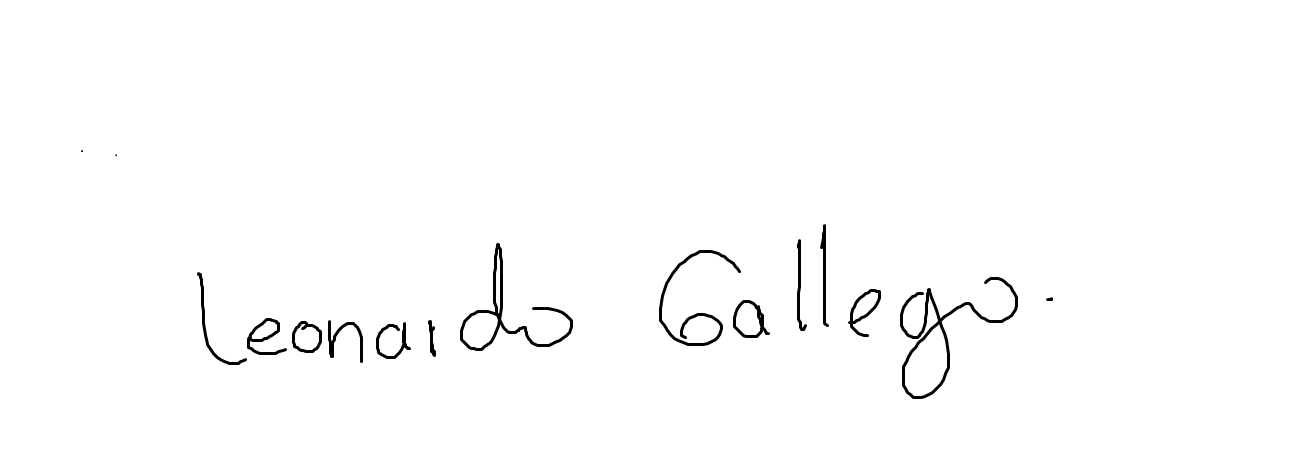 Leonardo Gallego.